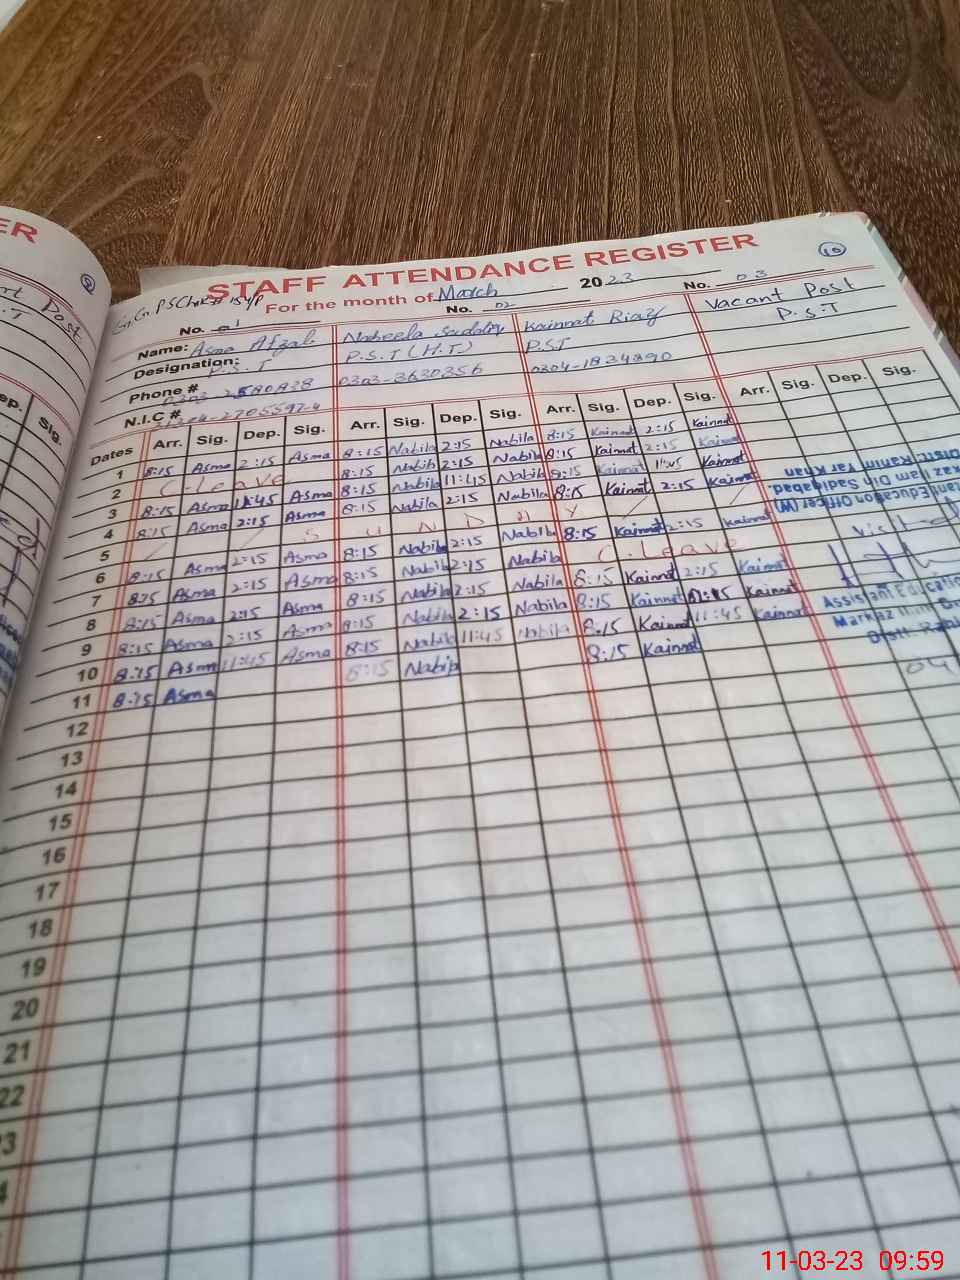 ER
STAFF ATTENDANCE REGISTER
10
For the month of March 2023
No. 01 No. 02 No. 03
Name: Asma Afzal Nabeela Kainnat Riaz Vacant Post
Designation: P.S.T P.S.T (H.T) P.S.T P.S.T
Phone # 0303-3630356 0304-1834890
N.I.C #
Dates Arr. Sig. Dep. Sig. Arr. Sig. Dep. Sig. Arr. Sig. Dep. Sig. Arr. Sig. Dep. Sig.
1 8:15 Asma 2:15 Asma 8:15 Nabila 2:15 Nabila 8:15 Kainnat 2:15 Kainnat
2 C-leave 8:15 Nabila 2:15 Nabila 8:15 Kainnat 2:15 Kainnat
3 8:15 Asma 11:45 Asma 8:15 Nabila 11:45 Nabila 8:15 Kainnat 11:45 Kainnat
4 8:15 Asma 2:15 Asma 8:15 Nabila 2:15 Nabila 8:15 Kainnat 2:15 Kainnat
5 S U N D A Y
6 8:15 Asma 2:15 Asma 8:15 Nabila 2:15 Nabila 8:15 Kainnat 2:15 Kainnat
7 8:15 Asma 2:15 Asma 8:15 Nabila 2:15 Nabila C-Leave
8 8:15 Asma 2:15 Asma 8:15 Nabila 2:15 Nabila 8:15 Kainnat 2:15 Kainnat
9 8:15 Asma 2:15 Asma 8:15 Nabila 2:15 Nabila 8:15 Kainnat Kainnat
10 8:15 Asma 11:45 Asma 8:15 Nabila 11:45 Nabila 8:15 Kainnat 11:45 Kainnat
11 8:15 Asma 8:15 Nabila 8:15 Kainnat
12
13
14
15
16
17
18
19
20
21
22
Education Officer (W)
Din Sadiqabad
Distt. Rahim Yar Khan
Visited
Assistant Educatio
Markaz
Distt. Rahi
04
11-03-23 09:59